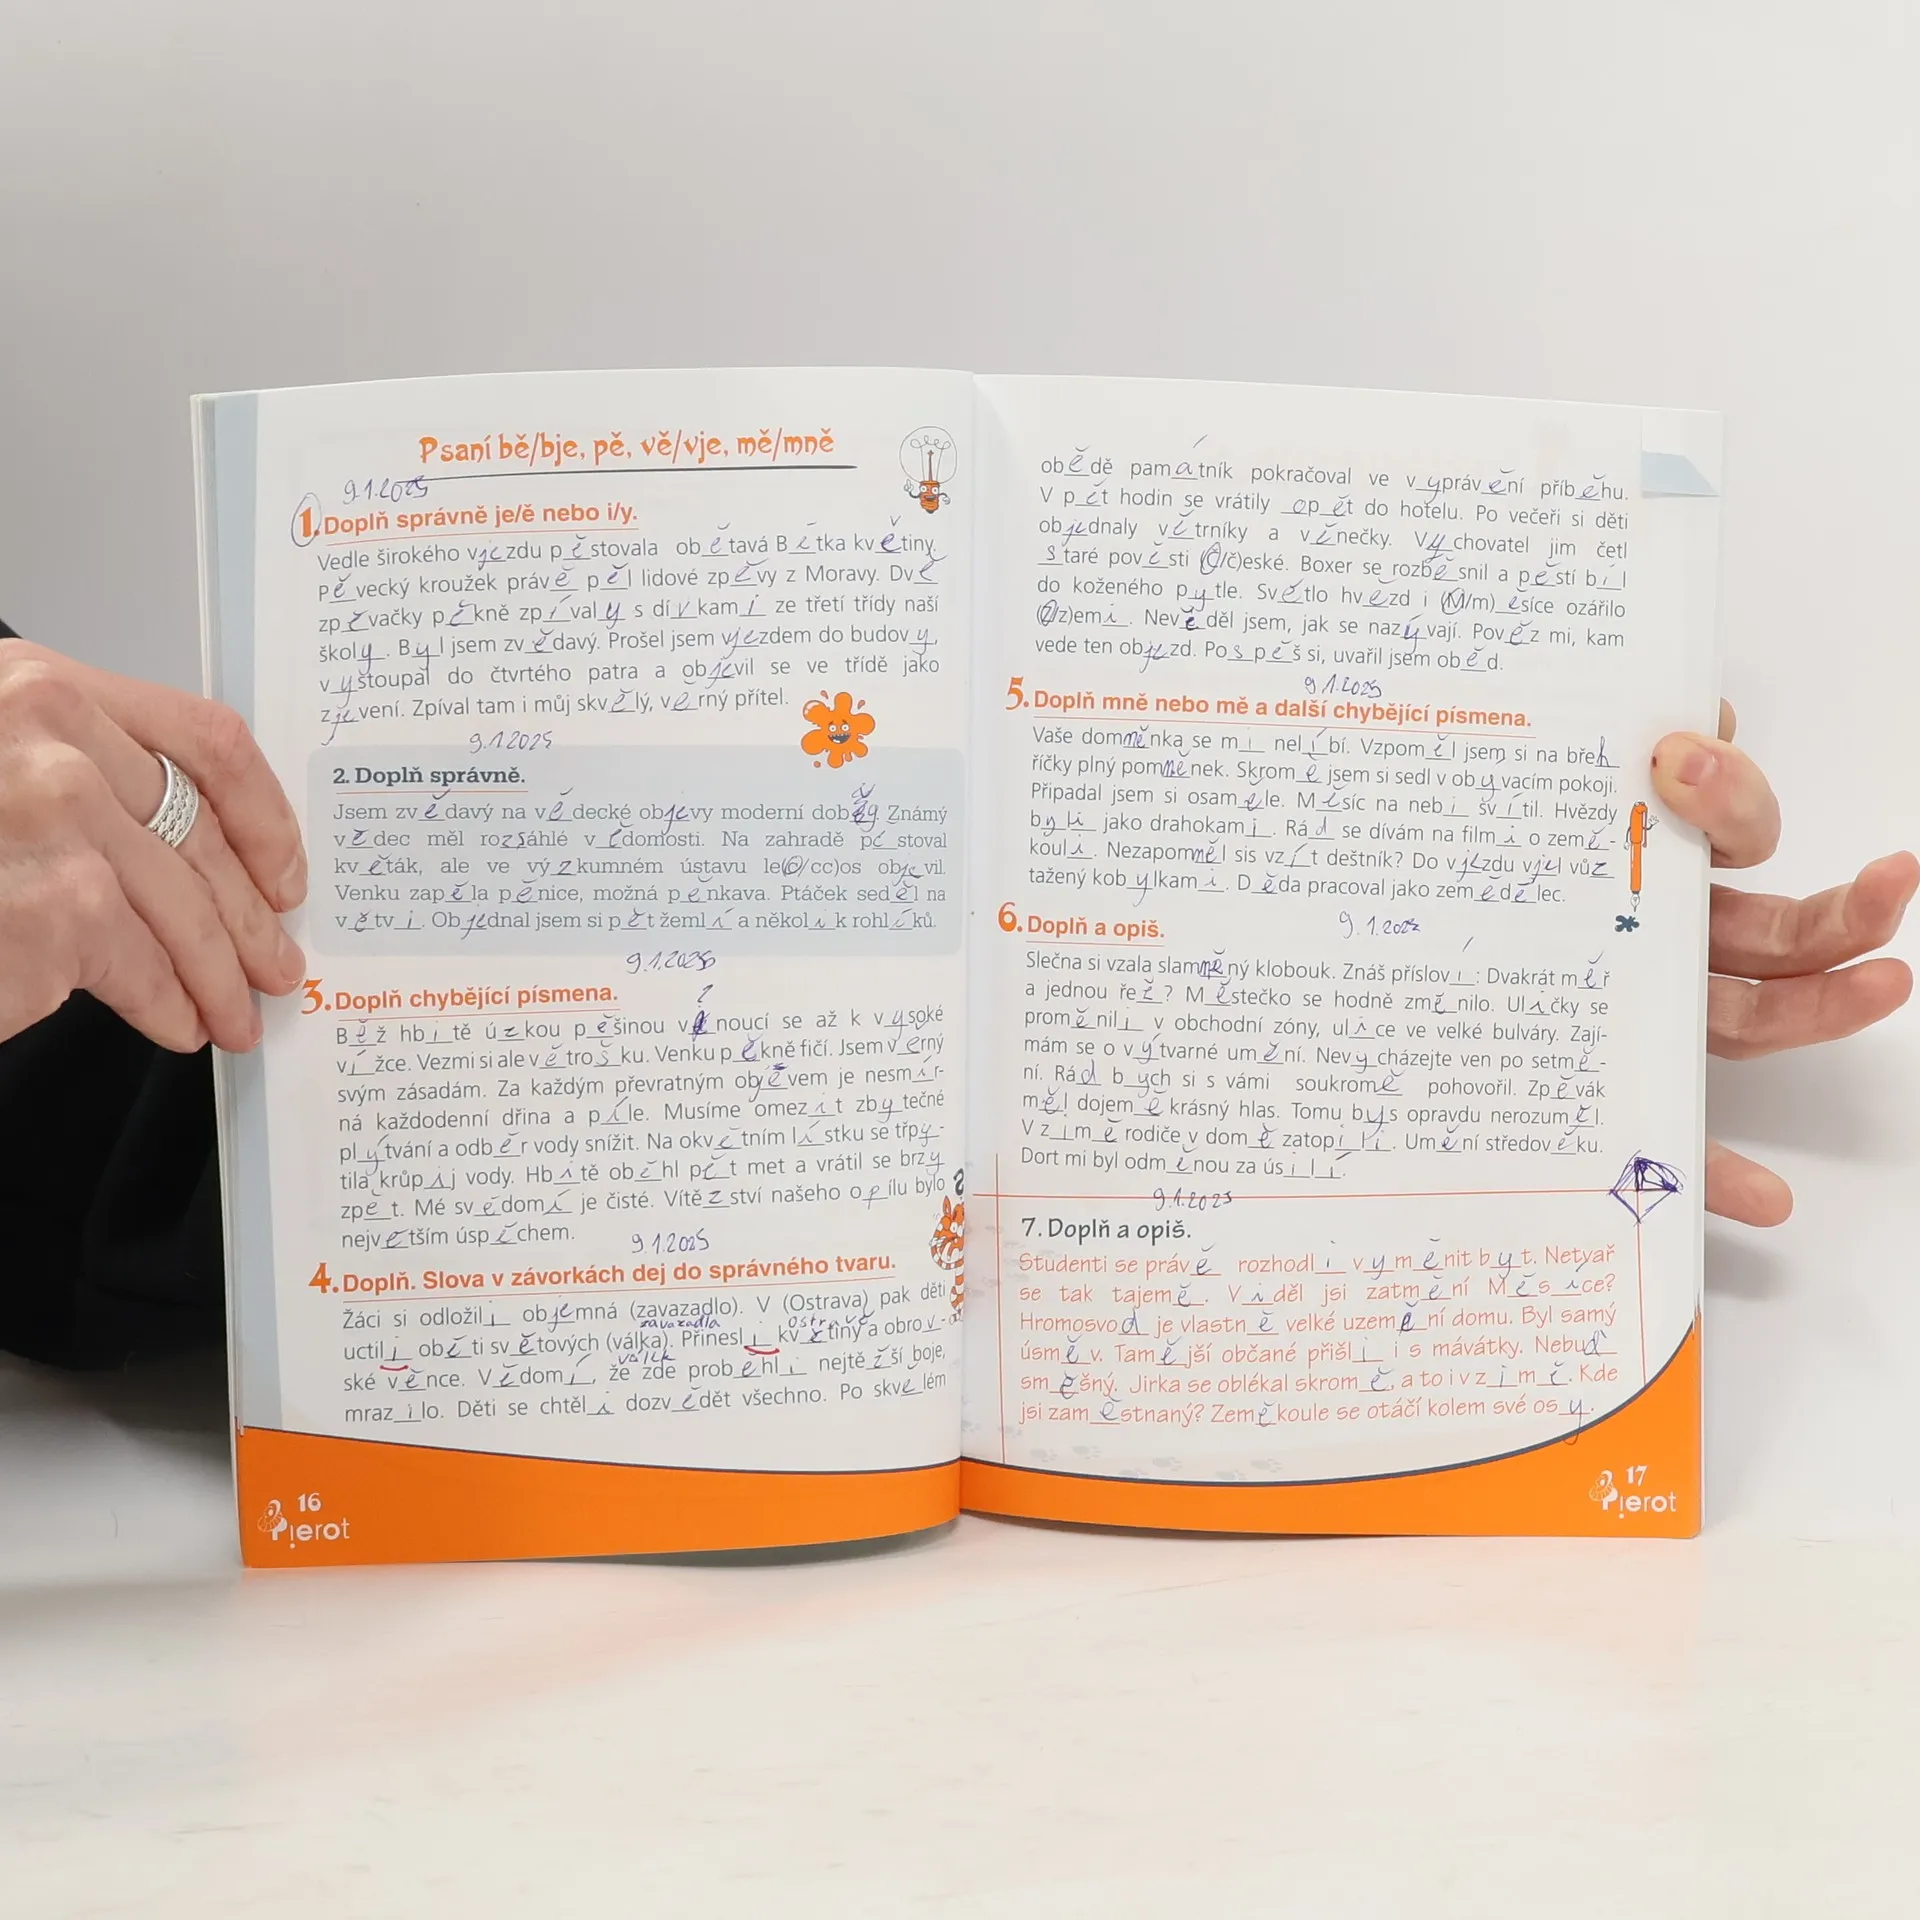 Psaní bě/bje, pě, vě/vje, mě/mně
9.1.2025
1. Doplň správně je/ě nebo i/y.
Vedle širokého vjezdu pěstovala obětavá Bětka květiny.
Pěvecký kroužek právě pěl lidové zpěvy z Moravy. Dvě
zpěvačky pěkně zpívaly s dívkami ze třetí třídy naší
školy. Byl jsem zvědavý. Prošel jsem vjezdem do budovy,
vystoupal do čtvrtého patra a objevil se ve třídě jako
zjevení. Zpíval tam i můj skvělý, věrný přítel.
9.1.2025
2. Doplň správně.
Jsem zvědavý na vědecké objevy moderní doby. Známý
vědec měl rozsáhlé vědomosti. Na zahradě pěstoval
květák, ale ve výzkumném ústavu le(c/cc)os objevil.
Venku zapěla pěnice, možná pěnkava. Ptáček seděl na
větvi. Objednal jsem si pět žemlí a několik rohlíků.
9.1.2025
3. Doplň chybějící písmena.
Běž hbitě úzkou pěšinou v noucí se až k vysoké
vížce. Vezmi si ale větrošku. Venku pěkně fičí. Jsem věrný
svým zásadám. Za každým převratným objěvem je nesmír-
ná každodenní dřina a píle. Musíme omezit zbytečné
plýtvání a odběr vody snížit. Na okvětním lístku se třpy-
tila krůpěj vody. Hbitě oběhl pět met a vrátil se brzy
zpět. Mé svědomí je čisté. Vítězství našeho opílu bylo
největším úspěchem.
9.1.2025
4. Doplň. Slova v závorkách dej do správného tvaru.
Žáci si odložili objemná (zavazadlo). V (Ostrava) pak děti
zavazadla Ostravě
uctili oběti světových (válka). Přinesli květiny a obrov-
válek
ské věnce. Vědomí, že zde proběhli nejtěžší boje,
mrazilo. Děti se chtěli dozvědět všechno. Po skvělém
16
Pierot
obědě památník pokračoval ve vyprávění příběhu.
V pět hodin se vrátily opět do hotelu. Po večeři si děti
objednaly větrníky a věnečky. Vychovatel jim četl
staré pověsti (Č/č)eské. Boxer se rozběsnil a pěstí bil
do koženého pytle. Světlo hvězd i (M/m)ěsíce ozářilo
(Z/z)emi. Nevěděl jsem, jak se nazývají. Pověz mi, kam
vede ten objezd. Pospěš si, uvařil jsem oběd.
9.1.2025
5. Doplň mně nebo mě a další chybějící písmena.
Vaše domněnka se mi nelíbí. Vzpoměl jsem si na břeh
říčky plný pomněnek. Skromě jsem si sedl v obyvacím pokoji.
Připadal jsem si osaměle. Měsíc na nebi svítil. Hvězdy
byli jako drahokami. Rád se dívám na filmi o země-
kouli. Nezapomněl sis vzít deštník? Do vjezdu vjel vůz
tažený kobylkami. Děda pracoval jako zemědělec.
9.1.2025
6. Doplň a opiš.
Slečna si vzala slamněný klobouk. Znáš přísloví: Dvakrát měř
a jednou řež? Městečko se hodně změnilo. Uličky se
proměnili v obchodní zóny, ulice ve velké bulváry. Zají-
mám se o výtvarné umění. Nevycházejte ven po setmě-
ní. Rád bych si s vámi soukromě pohovořil. Zpěvák
měl dojemě krásný hlas. Tomu bys opravdu nerozuměl.
V zimě rodiče v domě zatopili. Umění středověku.
Dort mi byl odměnou za úsilí.
9.1.2025
7. Doplň a opiš.
Studenti se právě rozhodli vyměnit byt. Netvař
se tak tajemě. Viděl jsi zatmění Měsíce?
Hromosvod je vlastně velké uzemění domu. Byl samý
úsměv. Tamější občané přišli i s mávátky. Nebuď
směšný. Jirka se oblékal skromě, a to i v zimě. Kde
jsi zaměstnaný? Zeměkoule se otáčí kolem své osy.
17
Pierot